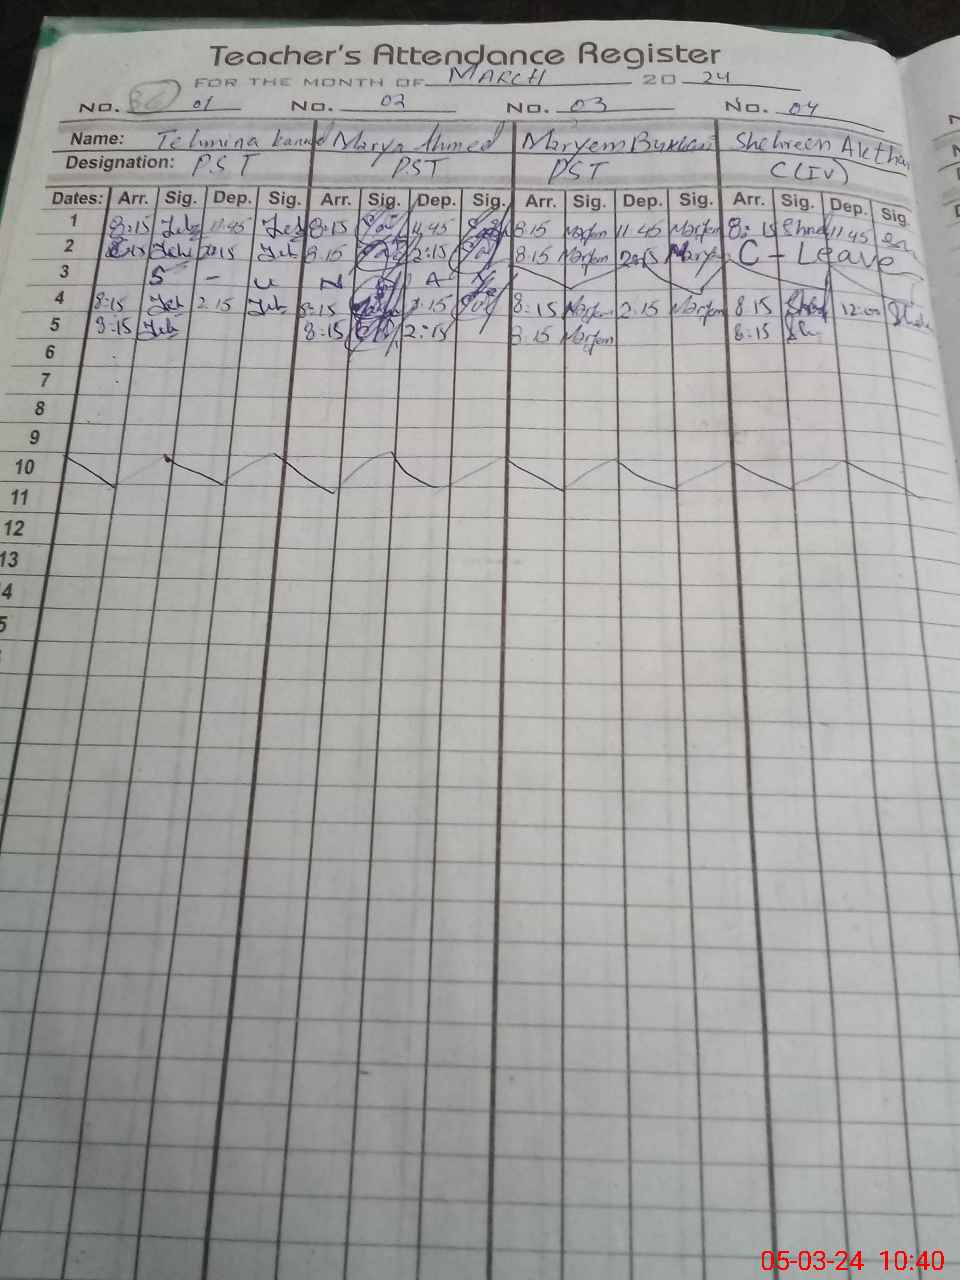 Teacher's Attendance Register
FOR THE MONTH OF MARCH 20 24
No. 01 No. 02 No. 03 No. 04
Name: Tehmina Maryam Ahmed Maryem Bukhari Shehreen Akthar
Designation: P.S.T PST PST C(IV)
Dates: Arr. Sig. Dep. Sig. Arr. Sig. Dep. Sig. Arr. Sig. Dep. Sig. Arr. Sig. Dep. Sig.
1 8:15 11:45 8:15 11.45 8.15 Maryam 11.45 Maryam 8:15 11 45
2 8:15 2:15 8.15 2:15 8.15 Maryam 2:15 Maryam C - Leave
3 S - U N D A Y
4 8:15 Teh 2.15 Teh 8:15 2:15 8:15 Maryam 2.15 Maryam 8.15 12:00
5 8:15 Teh 8:15 2:15 8.15 Maryam 8:15 Sh
6
7
8
9
10
11
12
13
4
5
05-03-24 10:40